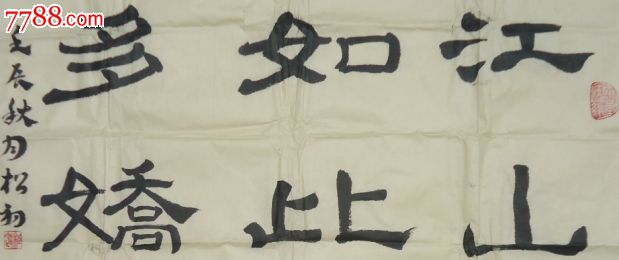 7788.com
江山
如此
多嬌
壬辰秋月松